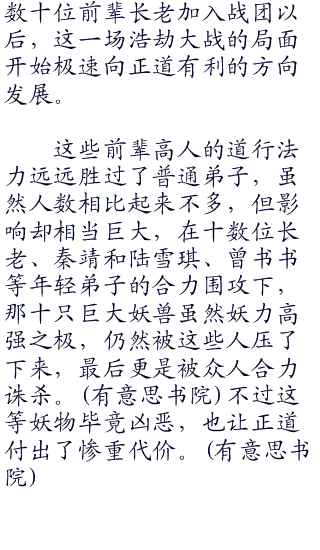 数十位前辈长老加入战团以
后，这一场浩劫大战的局面
开始极速向正道有利的方向
发展。
这些前辈高人的道行法
力远远胜过了普通弟子，虽
然人数相比起来不多，但影
响却相当巨大，在十数位长
老、秦靖和陆雪琪、曾书书
等年轻弟子的合力围攻下，
那十只巨大妖兽虽然妖力高
强之极，仍然被这些人压了
下来，最后更是被众人合力
诛杀。(有意思书院)不过这
等妖物毕竟凶恶，也让正道
付出了惨重代价。(有意思书
院)